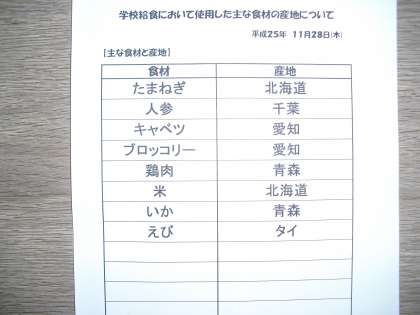 学校給食において使用した主な食材の産地について
平成25年 11月28日(木)
【主な食材と産地】
食材 産地
たまねぎ 北海道
人参 千葉
キャベツ 愛知
ブロッコリー 愛知
鶏肉 青森
米 北海道
いか 青森
えび タイ